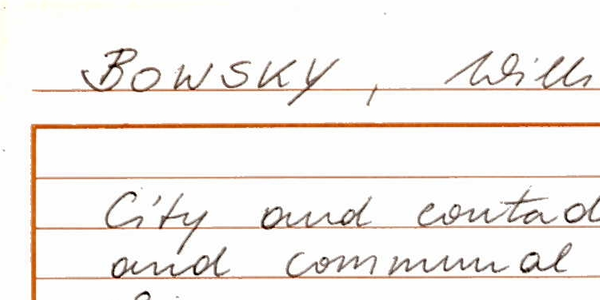 BOWSKY, Will
City and contad
and communal